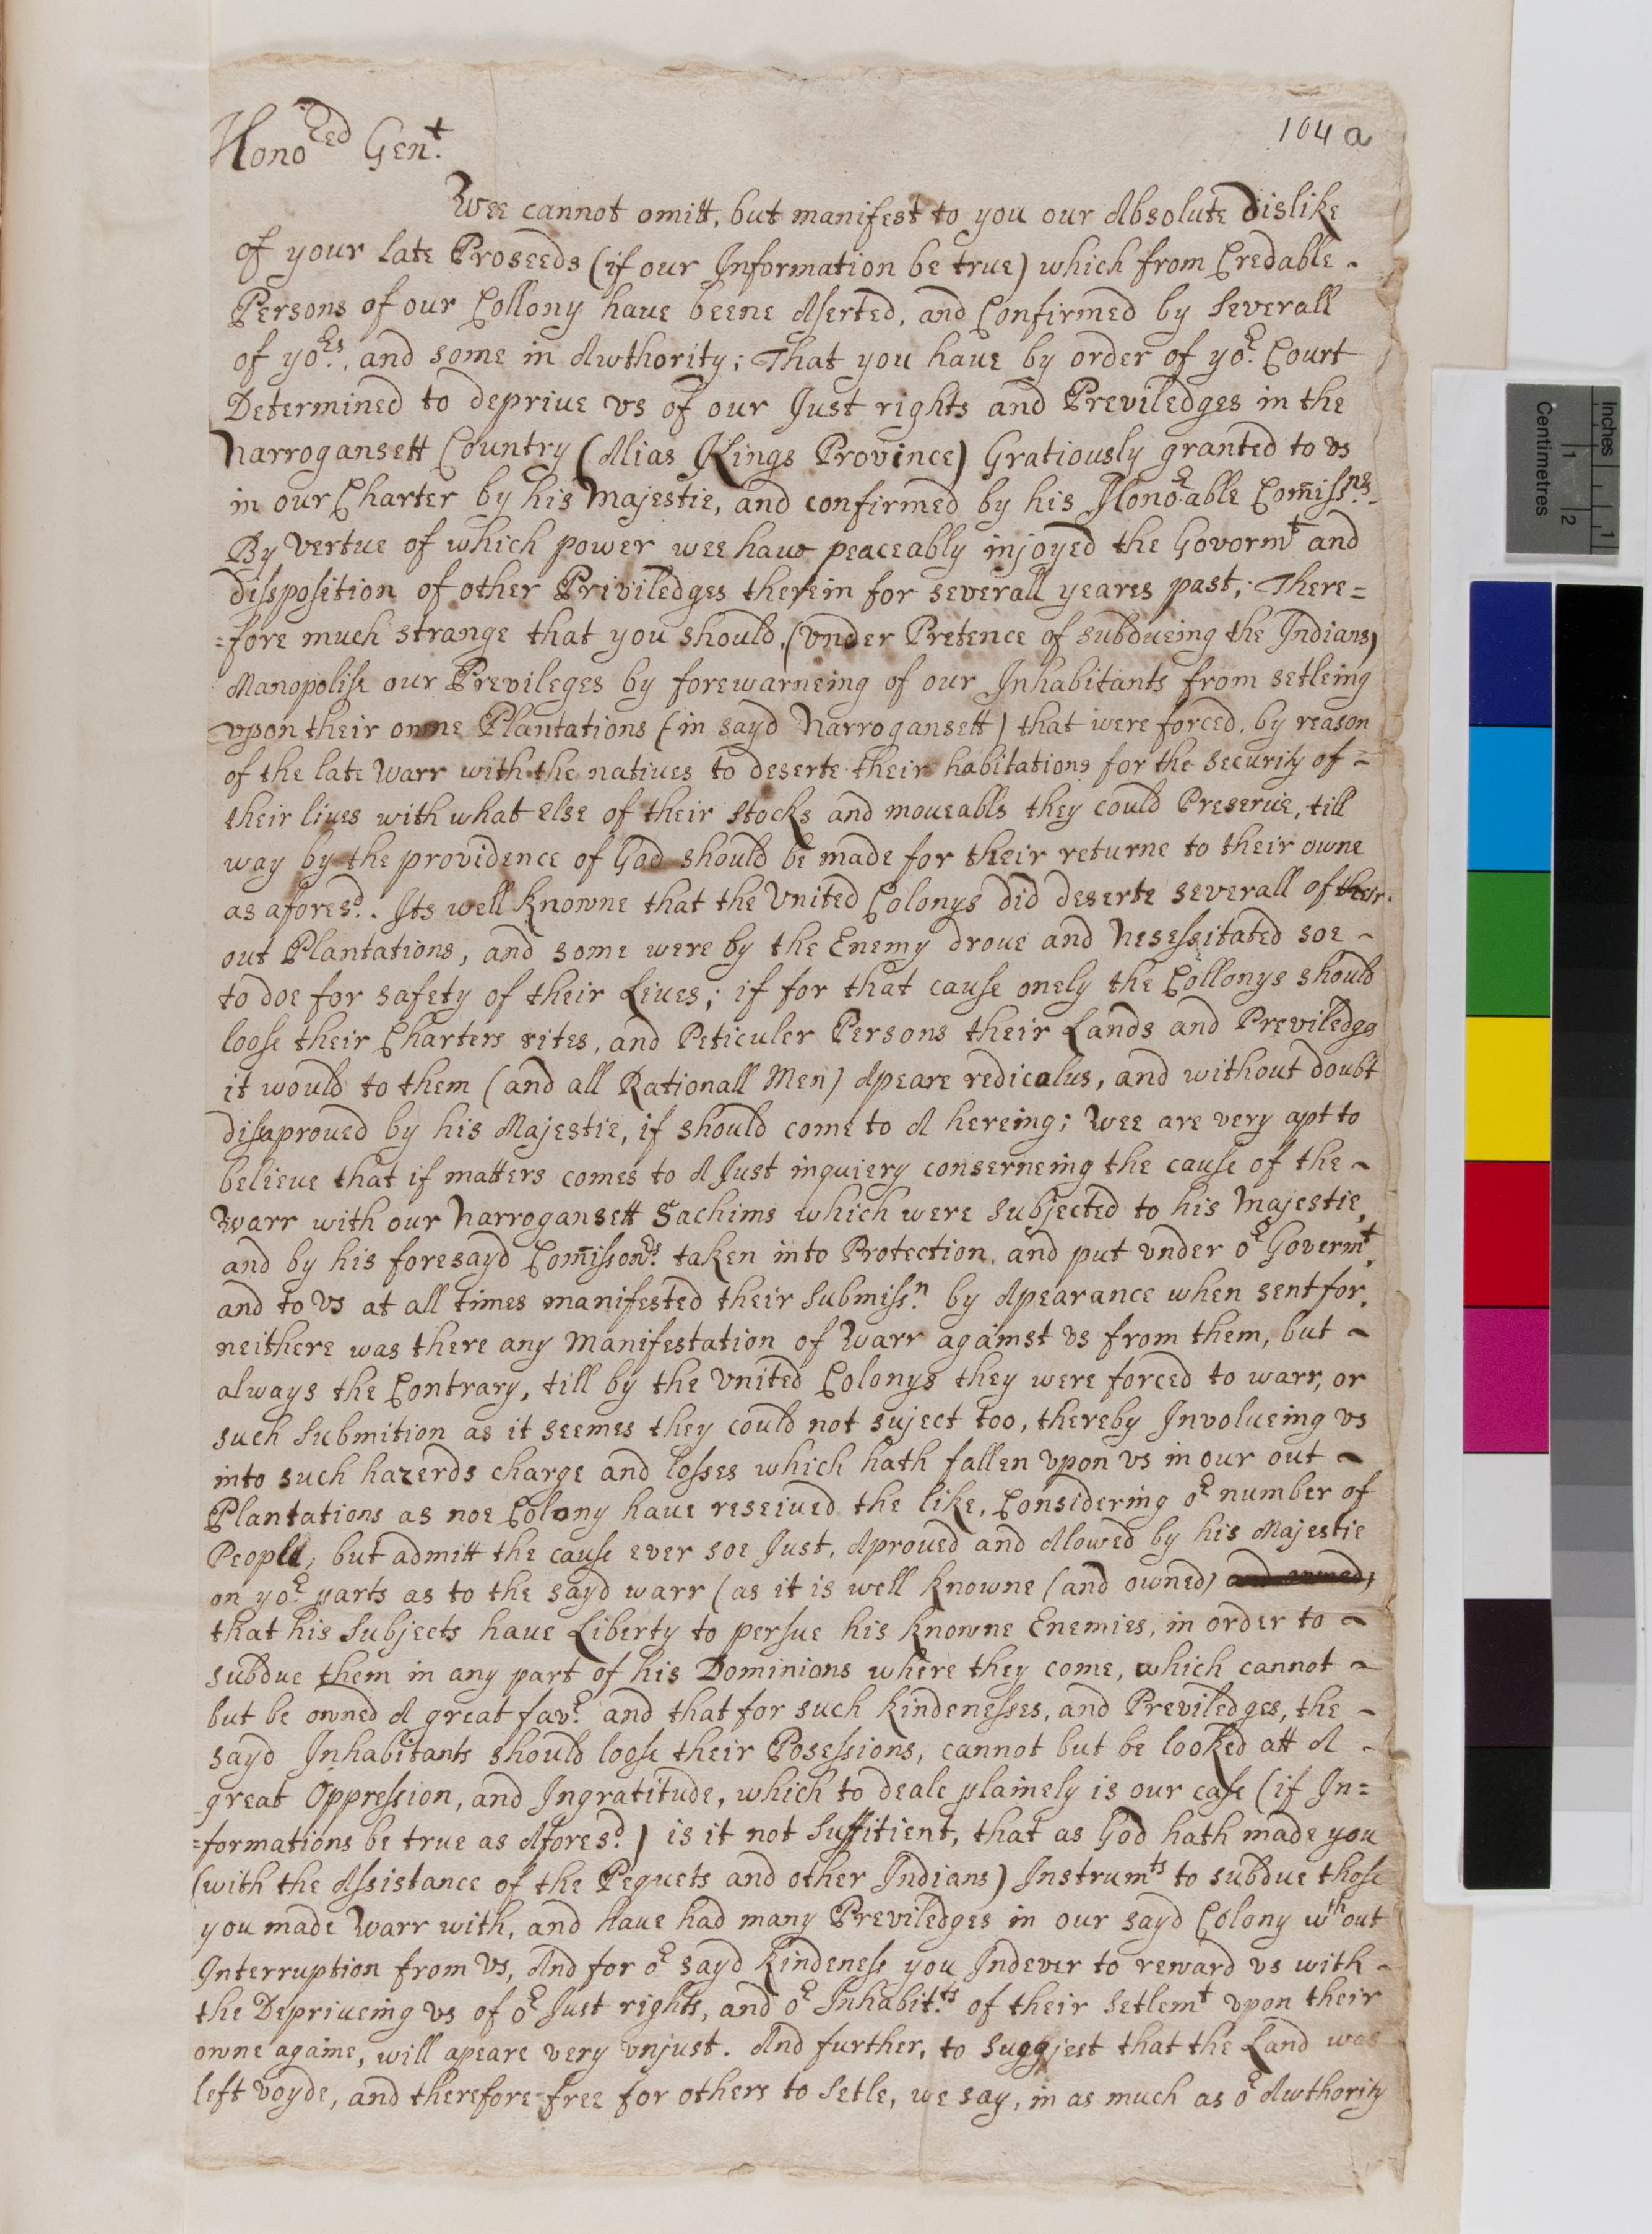 104 a
Honored Gent.
Wee cannot omitt, but manifest to you our Absolute dislike
of your late Proseeds (if our Information be true) which from Credable -
Persons of our Collony haue beene Aserted, and Confirmed by Severall
of yo:rs, and some in Awthority; That you haue by order of yo:r Court
Determined to depriue vs of our Just rights and Previledges in the
Narrogansett Country (Alias Kings Province) Gratiously granted to vs
in our Charter by his Majestie, and confirmed by his Honorable Comissnrs.
By vertue of which power wee haue peaceably injoyed the Govormt and
dissposition of other Priviledges therein for severall yeares past; There=
=fore much strange that you should, (vnder Pretence of subdueing the Indians)
Manopolise our Previleges by forewarneing of our Inhabitants from setleing
vpon their owne Plantations (in sayd Narrogansett) that were forced, by reason
of the late Warr with the natiues to deserte their habitations for the security of -
their liues with what else of their Stocks and moueabls they could Preserue, till
way by the providence of God should be made for their returne to their owne
as aforesd. Its well knowne that the Vnited Colonys did deserte severall of their
out Plantations, and some were by the Enemy droue and Nesessitated soe -
to doe for safety of their Liues; if for that cause onely the Collonys should
loose their Charters rites, and Peticuler Persons their Lands and Previledgs
it would to them (and all Rationall Men) Apeare redicalus, and without doubt
disaproued by his Majestie, if should come to A hereing; Wee are very apt to
belieue that if matters comes to A Just inquiery conserneing the cause of the -
Warr with our Narrogansett Sachims which were Subjected to his Majestie,
and by his foresayd Comissonrs. taken into Protection, and put vnder or Govermt,
and to vs at all times manifested their Submissn. by Apearance when sent for,
neithere was there any Manifestation of Warr against vs from them, but -
always the Contrary, till by the Vnited Colonys they were forced to warr, or
such Submition as it seemes they could not suject too, thereby Involueing vs
into such hazerds charge and losses which hath fallen vpon vs in our out -
Plantations as noe Colony haue reseiued the like, Considering or number of
People; but admitt the cause ever soe Just, Aproued and Alowed by his Majestie
on yo:r parts as to the sayd warr (as it is well knowne (and owned) and owned)
that his Subjects haue Liberty to persue his knowne Enemies, in order to -
subdue them in any part of his Dominions where they come, which cannot -
but be owned A great favr. and that for such kindenesses, and Previledges, the -
sayd Inhabitants should loose their Posessions, cannot but be looked att A -
great Oppression, and Ingratitude, which to deale plainely is our case (if In=
=formations be true as Aforesd.) is it not Suffitient, that as God hath made you
(with the Assistance of the Pequets and other Indians) Instrumts to subdue those
you made Warr with, and haue had many Previledges in our sayd Colony wthout
Interruption from vs, And for or sayd kindeness you Indever to reward vs with -
the Depriueing vs of or Just rights, and or Inhabit:ts of their Setlemt vpon their
owne againe, will apeare very vnjust. And further, to suggjest that the Land was
left voyde, and therefore free for others to Setle, we say, in as much as or Awthority
Inches
1
Centimetres
1
2